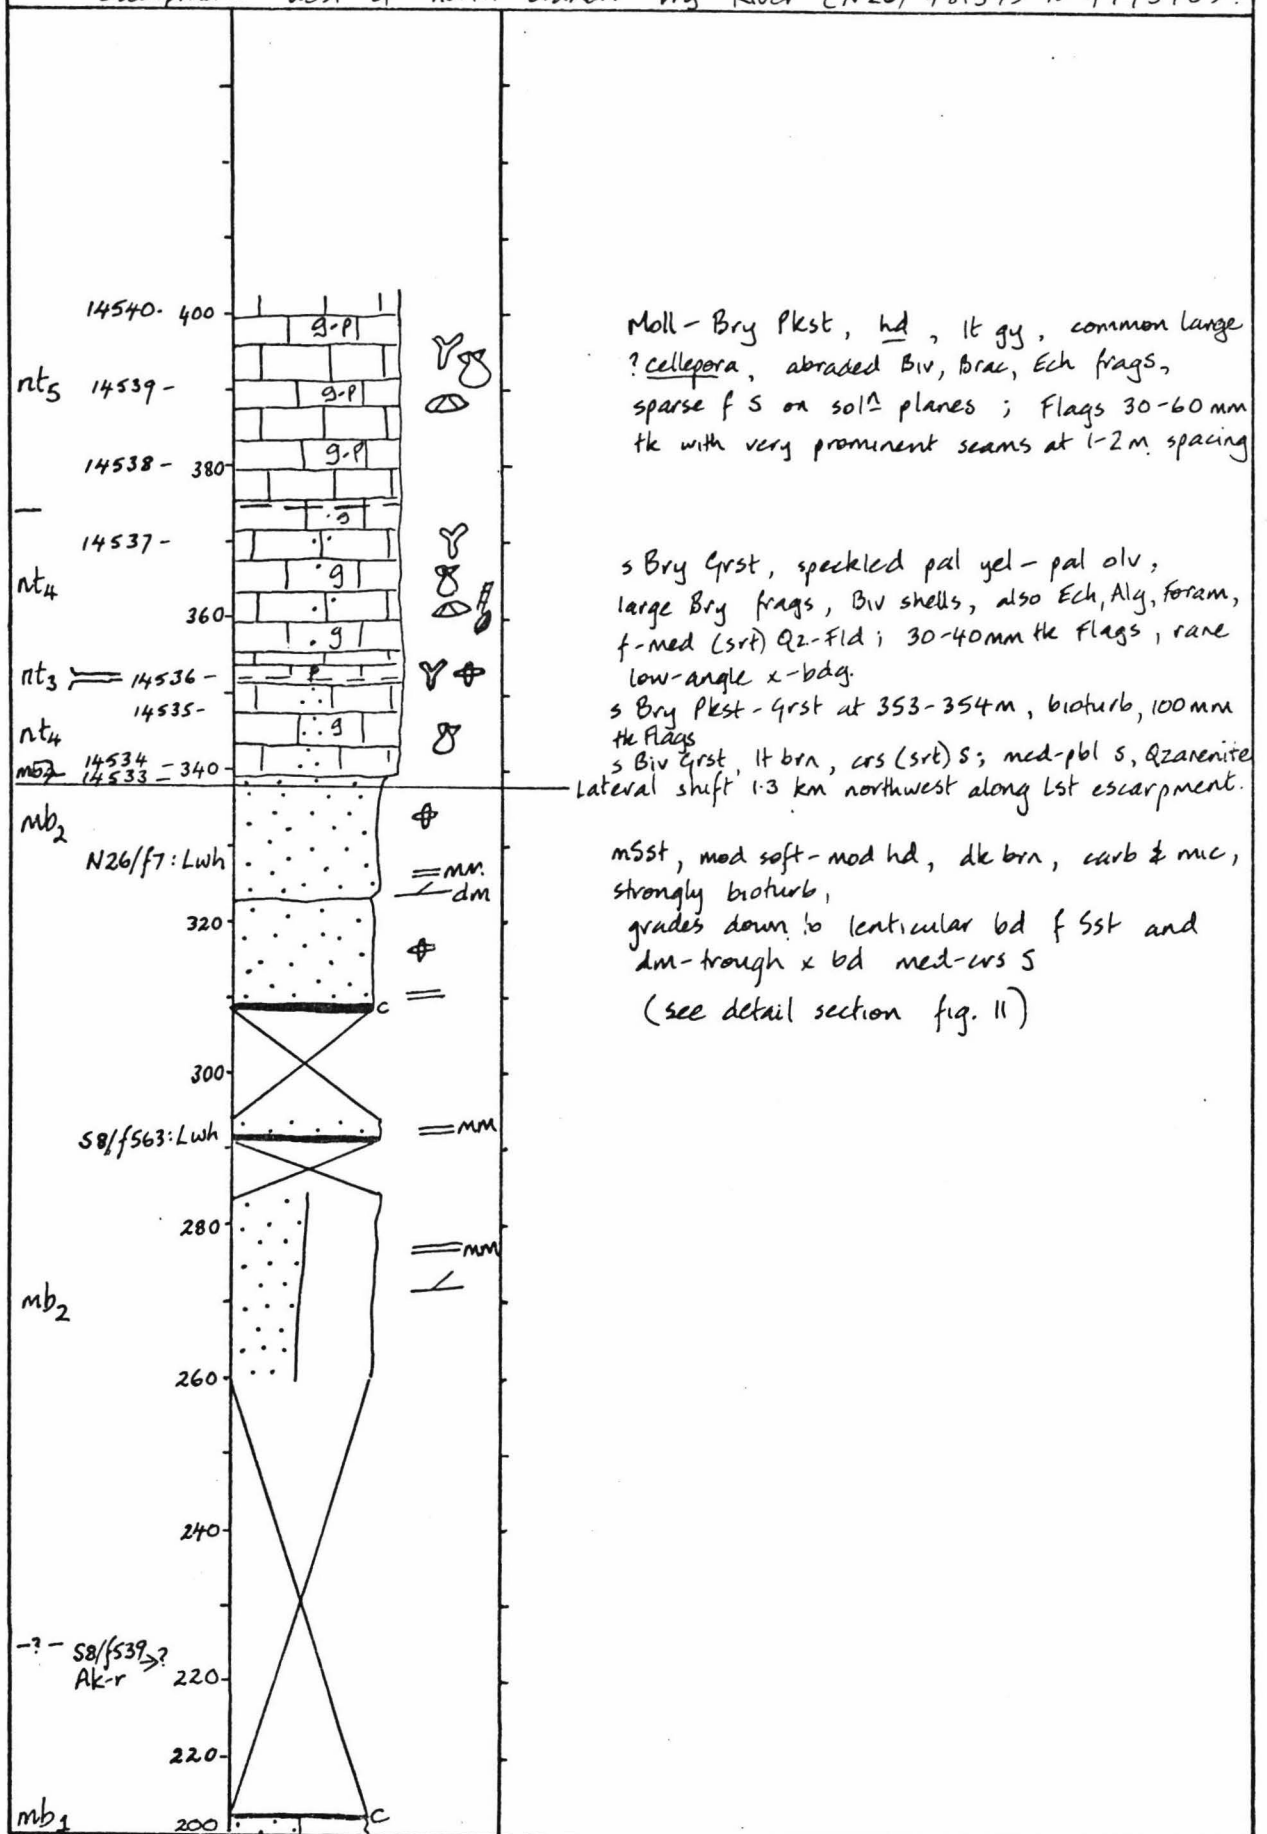 River (N26/
14540- 400
g-p
nt5 14539-
g-p
14538- 380
g-p
14537-
g
nt4
g
360
g
nt3 14536-
P
14535-
g
nt4
14534
14533 - 340
mb2
N26/f7: Lwh
mm
dm
320
c
300
S8/f563: Lwh
mm
280
mm
mb2
260
240
-?- S8/f539 → ?
Ak-r 220
220
c
mb1 200
Moll - Bry Pkst, hd, lt gy, common large
? cellepora, abraded Biv, Brac, Ech frags,
sparse f S on solⁿ planes ; Flags 30-60 mm
tk with very prominent seams at 1-2 m. spacing
s Bry Grst, speckled pal yel - pal olv,
large Bry frags, Biv shells, also Ech, Alg, Foram,
f-med (srt) Qz-Fld ; 30-40mm tk Flags, rare
low-angle x-bdg.
s Bry Pkst - Grst at 353-354m, bioturb, 100mm
tk Flags
s Biv Grst, lt brn, crs (srt) S; med-pbl S, Qzarenite
Lateral shift 1.3 km northwest along Lst escarpment.
mSst, mod soft-mod hd, dk brn, carb & mic,
strongly bioturb,
grades down to lenticular bd f Sst and
dm-trough x bd med-crs S
(see detail section fig. 11)